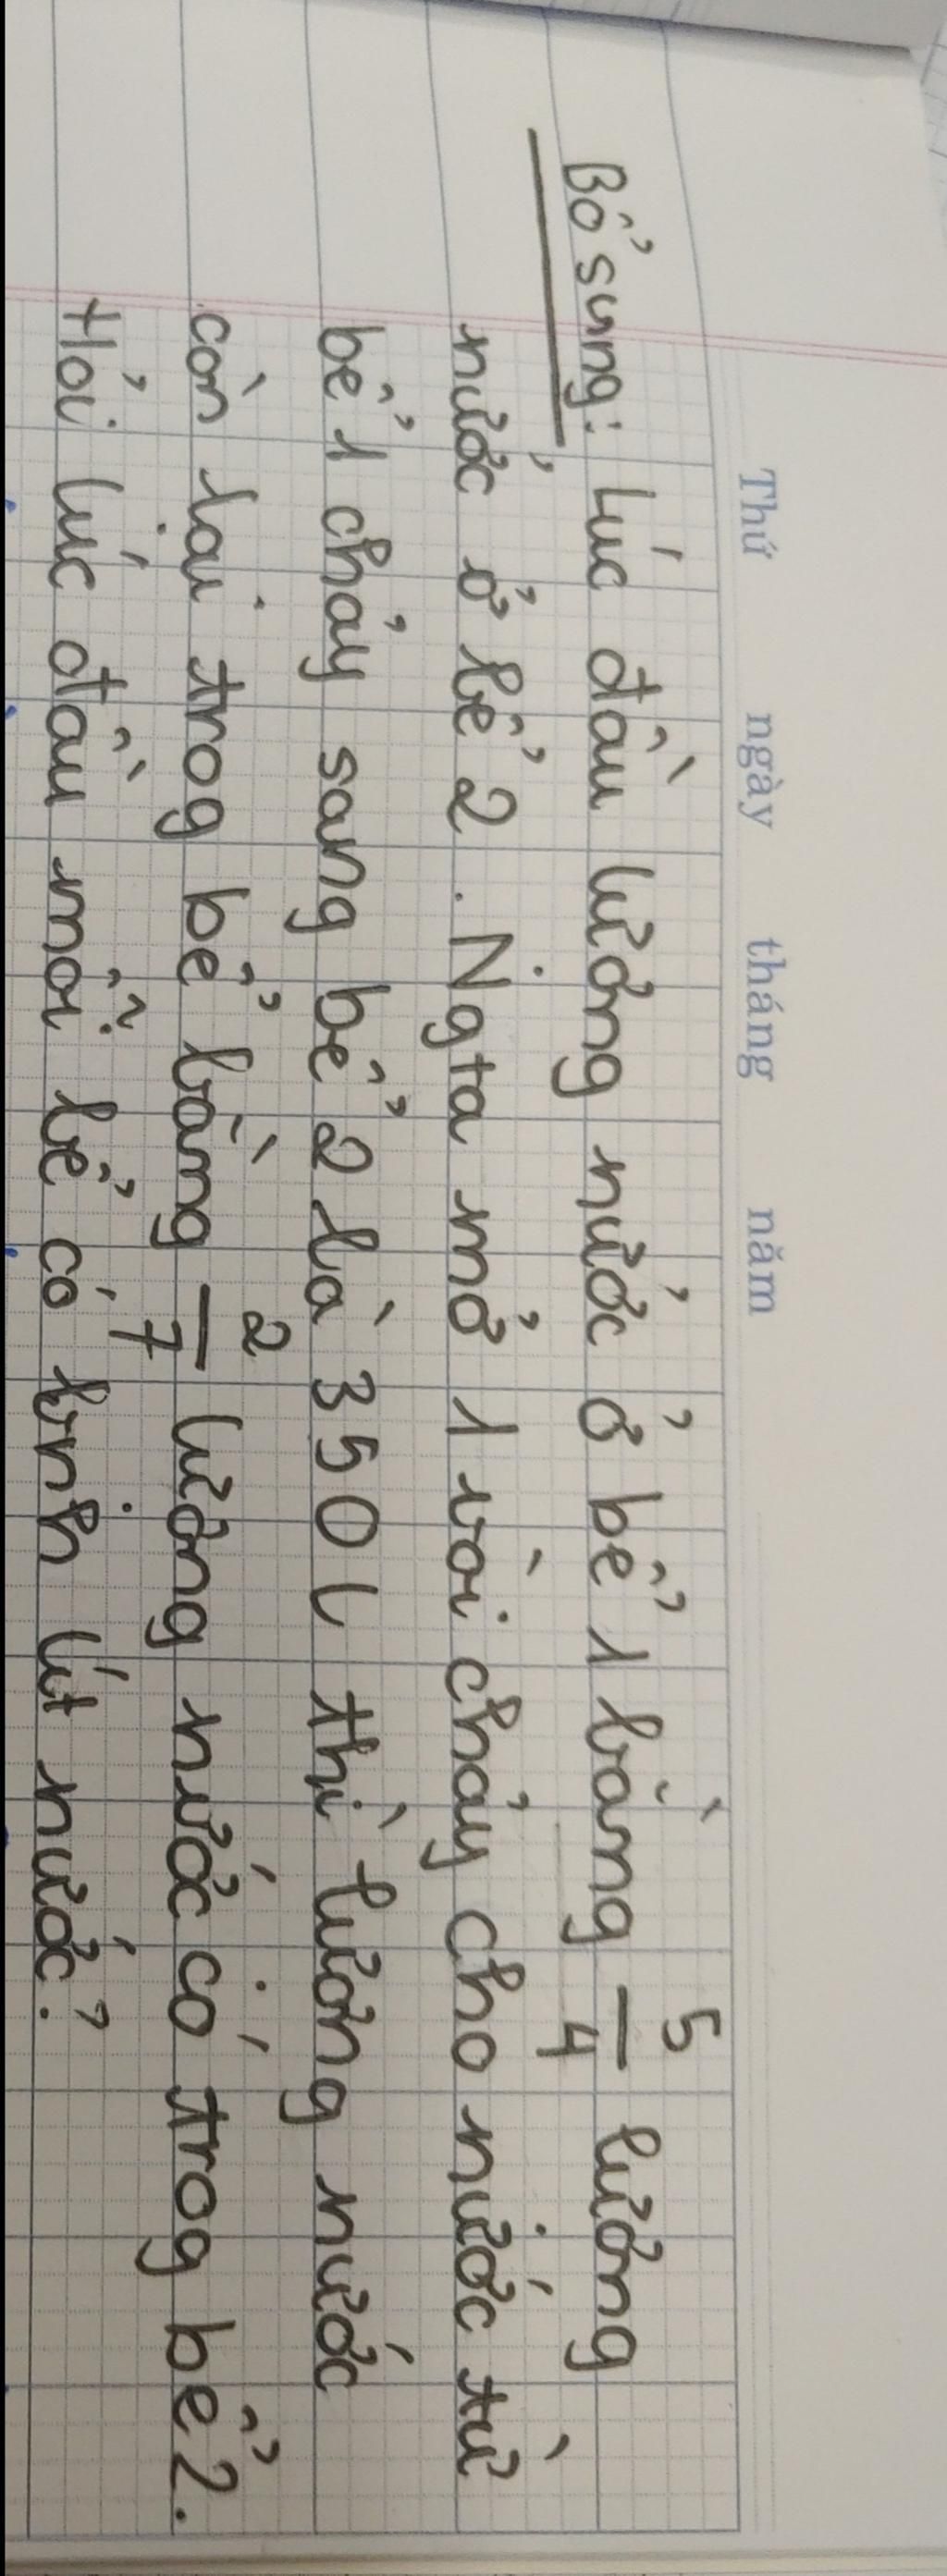 Thứ ngày tháng năm
Bổ sung: Lúc đầu lượng nước ở bể 1 bằng 5/4 lượng
nước ở bể 2. Ngta mở 1 vòi chảy cho nước từ
bể 1 chảy sang bể 2 là 350 l thì lượng nước
còn lại trog bể bằng 2/7 lượng nước có trog bể 2.
Hỏi lúc đầu mỗi bể có bnh lít nước?